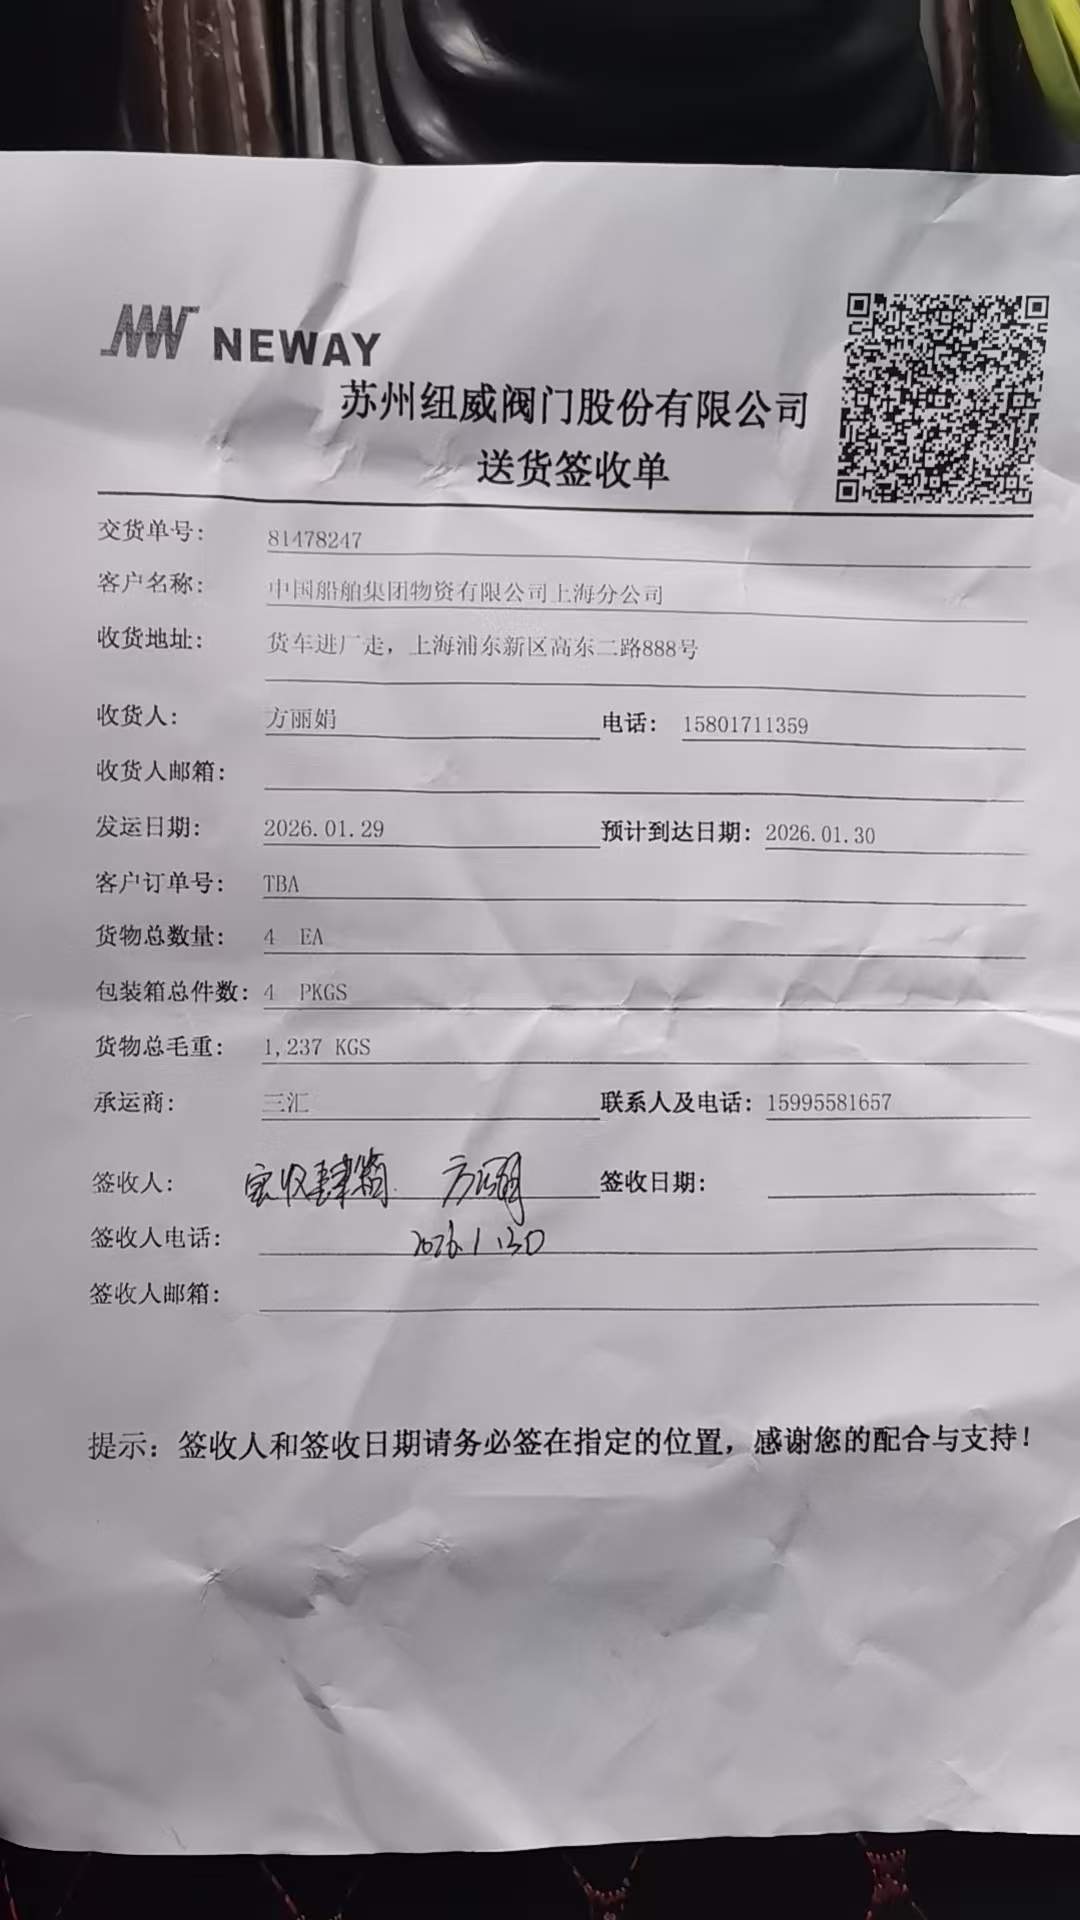 NEWAY
苏州纽威阀门股份有限公司
送货签收单
交货单号: 81478247
客户名称: 中国船舶集团物资有限公司上海分公司
收货地址: 货车进厂走，上海浦东新区高东二路888号
收货人: 方丽娟 电话: 15801711359
收货人邮箱:
发运日期: 2026.01.29 预计到达日期: 2026.01.30
客户订单号: TBA
货物总数量: 4 EA
包装箱总件数: 4 PKGS
货物总毛重: 1,237 KGS
承运商: 三汇 联系人及电话: 15995581657
签收人: 实收肆箱 方丽娟 签收日期:
签收人电话: 2026.1.30
签收人邮箱:
提示: 签收人和签收日期请务必签在指定的位置，感谢您的配合与支持!